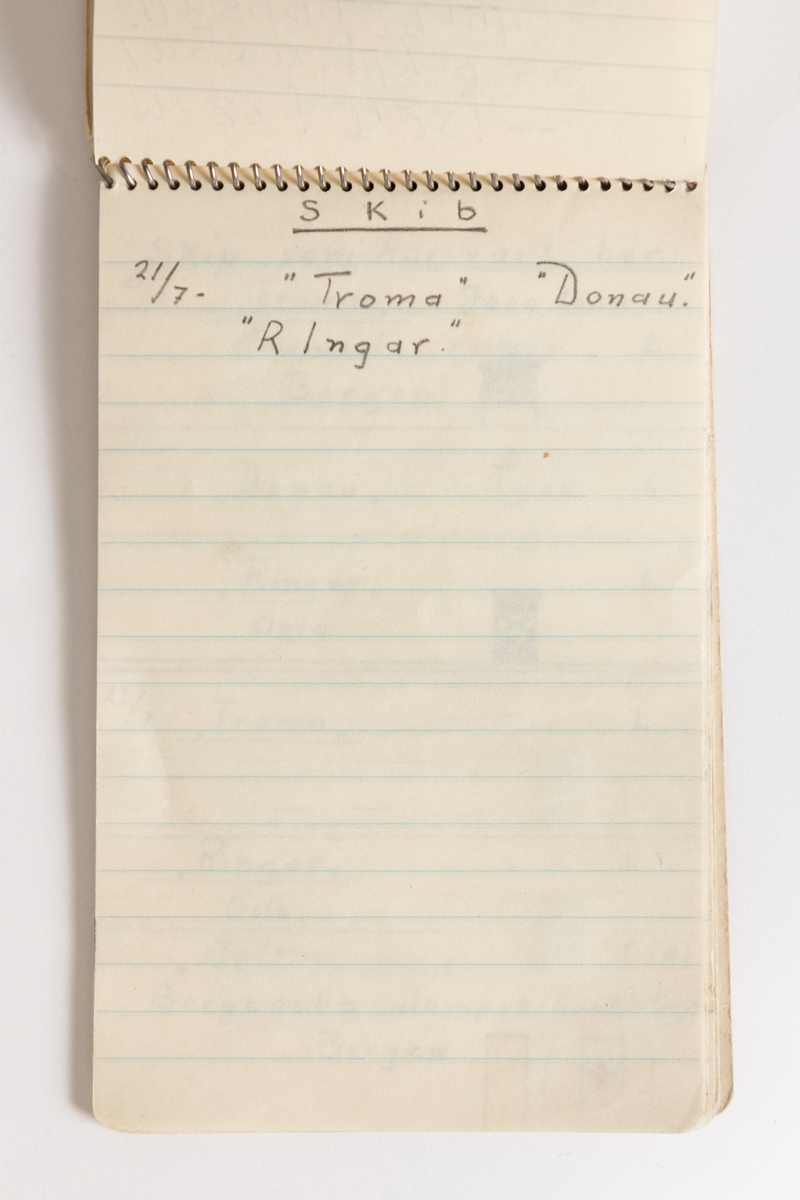 Skib
21/7- "Troma" "Donau."
"RIngar."